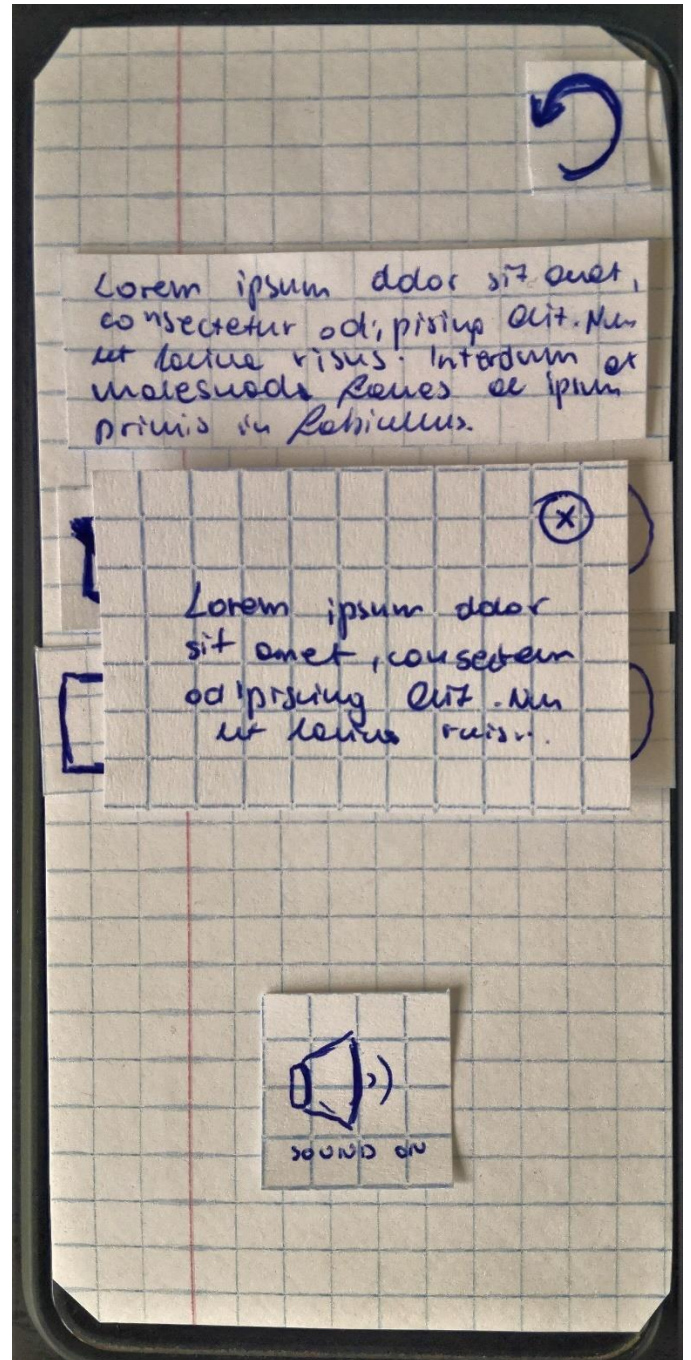 Lorem ipsum dolor sit amet,
consectetur adipising elit. Nun
ut lacina risus. Interdum et
malesuada fames ac ipsum
primis in
X
Lorem ipsum dolor
sit amet, consectem
adipiscing elit. Nun
ut lacina
SOUND ON